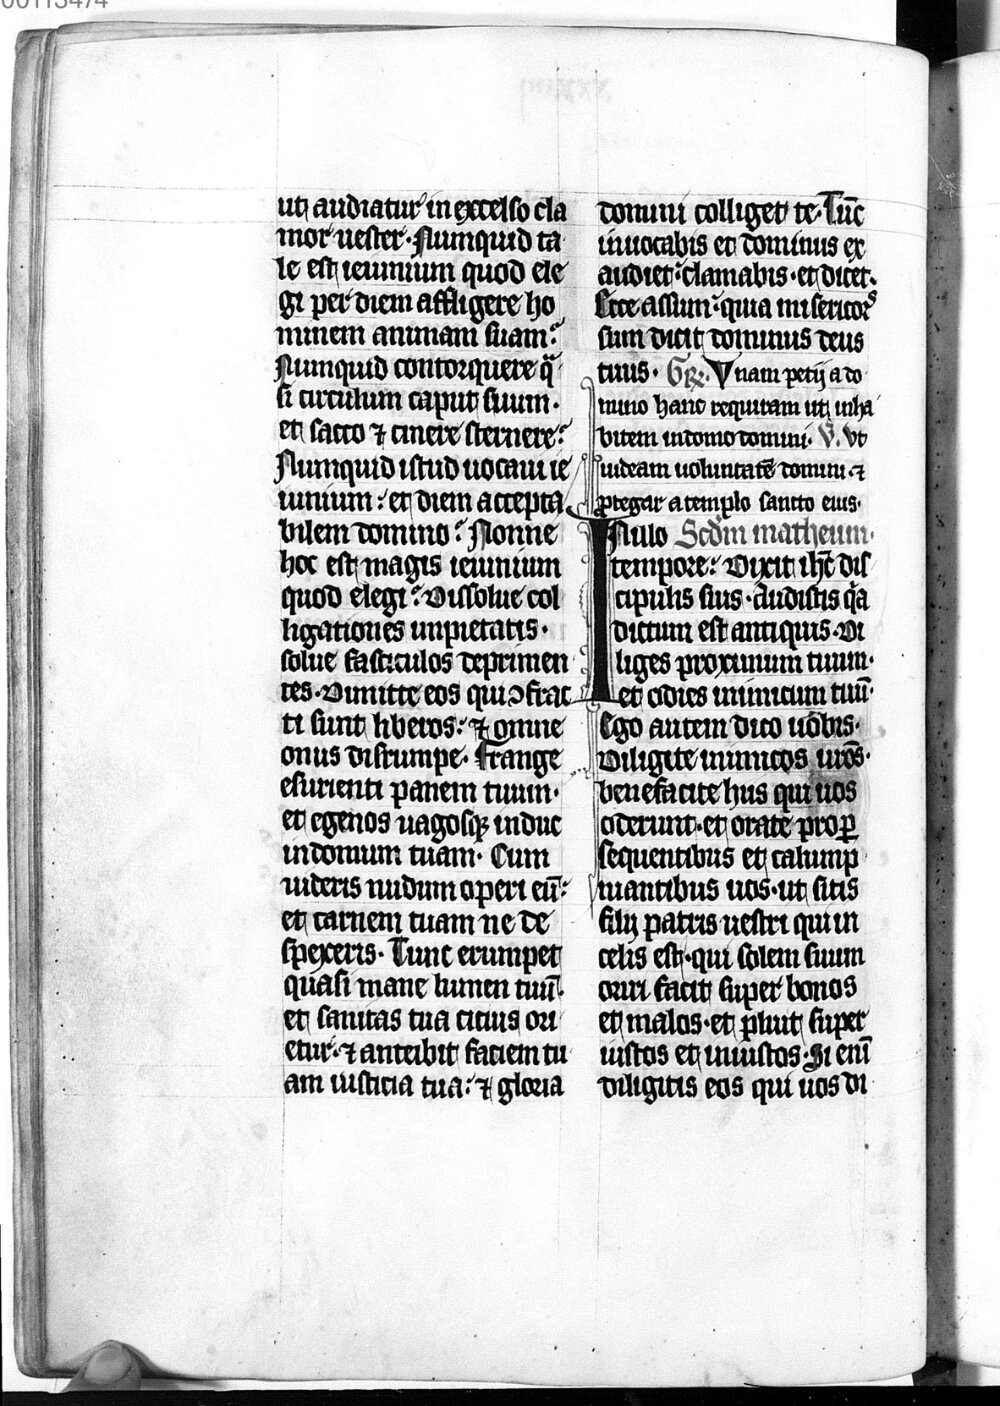 00113474
ut audiatur in excelso cla
mor uester. Numquid ta
le est ieiunium quod ele
gi per diem affligere ho
minem animam suam?
Numquid contorquere q̄
si circulum caput suum.
et sacco ⁊ cinere sternere?
Numquid istud uocaui ie
iunium: et diem accepta
bilem domino? Nonne
hoc est magis ieiunium
quod elegi? Dissolue col
ligationes impietatis.
solue fasciculos deprimen
tes. Dimitte eos qui ↄfrac
ti sunt liberos: ⁊ omne
onus disrumpe. Frange
esurienti panem tuum.
et egenos uagosqꝫ induc
in domum tuam. Cum
uideris nudum operi eū:
et carnem tuam ne de
spexeris. Tunc erumpet
quasi mane lumen tuū
et sanitas tua citius ori
etur. ⁊ anteibit faciem tu
am iusticia tua: ⁊ gloria
domini colliget te. Tūc
inuocabis et dominus ex
audiet: clamabis. et dicet.
Ecce assum: quia misericors
sum dicit dominus deus
tuus. Gr̄. Vnam petij a do
mino hanc requiram ut inha
bitem in domo domini. V. Vt
uideam uoluntatē domini. ⁊
ꝓtegar a templo sancto eius.
In illo Scd̄m matheum.
tempore: Dixit ih̄c dis
cipulis suis. Audistis q̄a
dictum est antiquis. Di
liges proximum tuum.
et odies inimicum tuū.
Ego autem dico uōbis.
Diligite inimicos urōs.
benefacite hiis qui uos
oderunt. et orate pro ꝑ
sequentibus et calump
niantibus uos. ut sitis
filij patris uestri qui in
celis est. qui solem suum
oriri facit super bonos
et malos. et pluit super
iustos et iniustos. Si enī
diligitis eos qui uos di